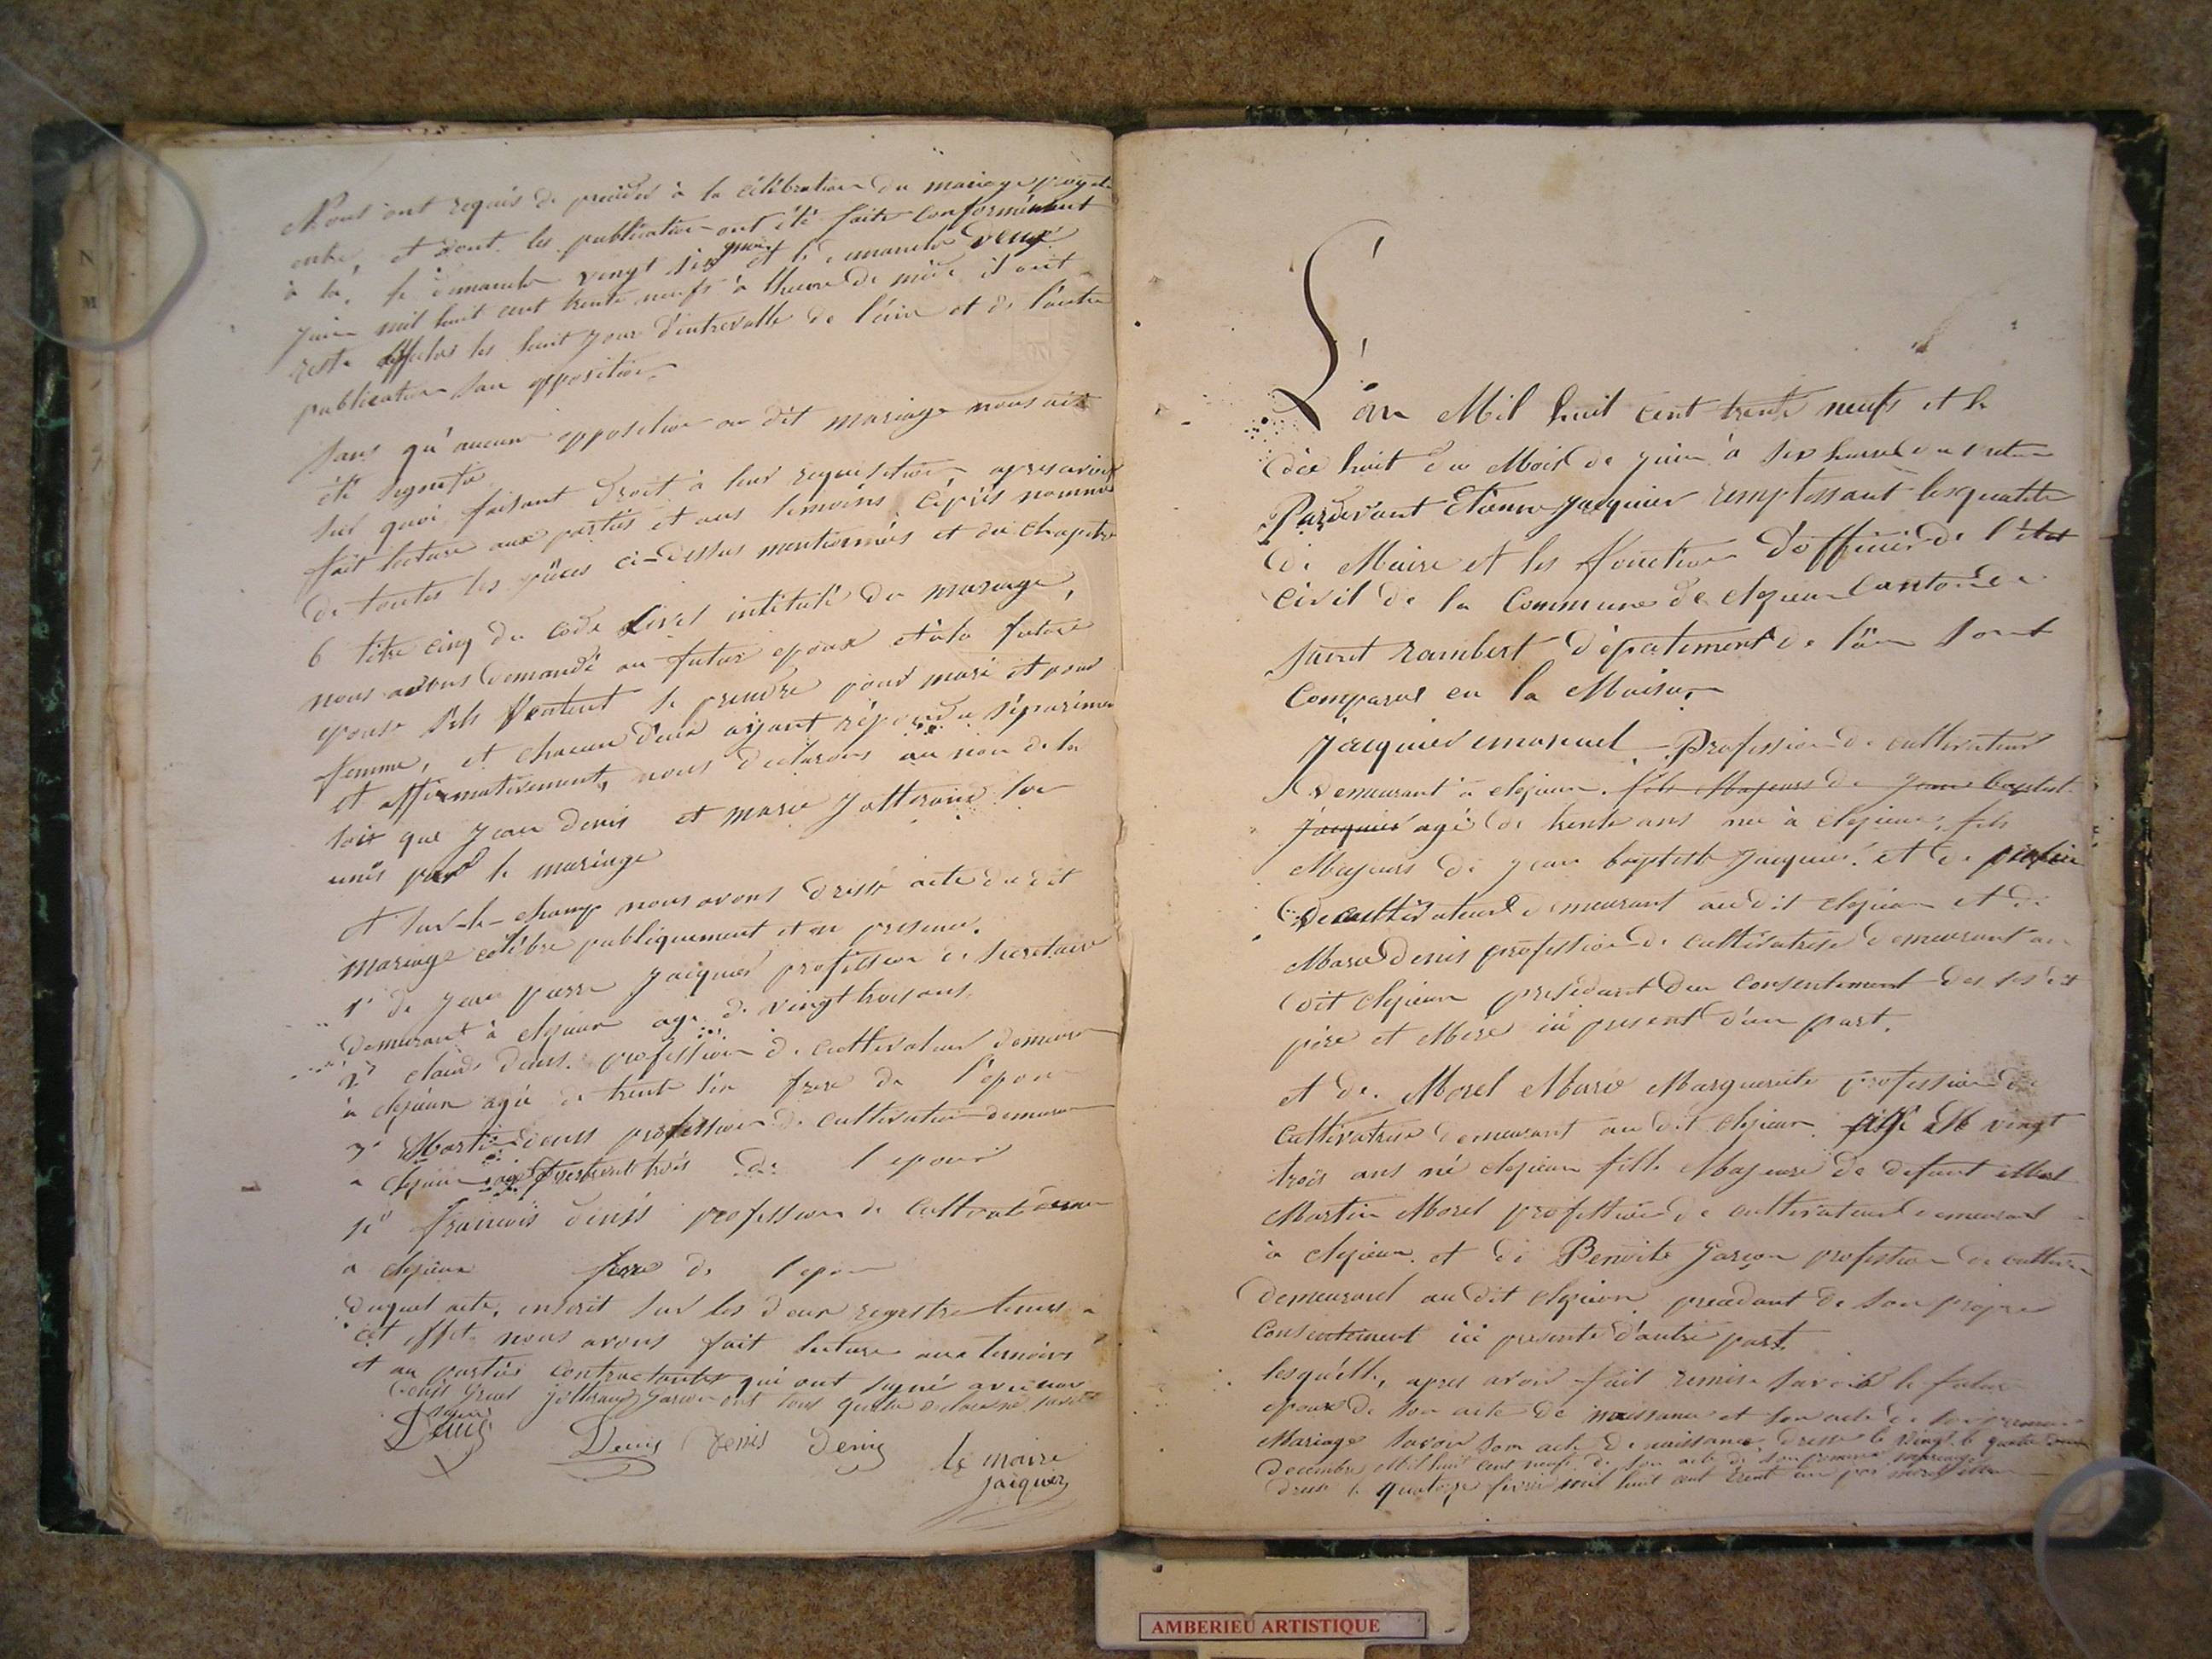 Nous ont requis de procéder à la célébration du mariage projeté
entre, et dont les publication ont été faite conformément
à la, le dimanche vingt six mai et le dimanche deux
juin mil huit cent trente neufs à lheure de midi il ont
resté affichés les huit jour d'intrevalle de l'une et de l'autre
publication san opposition
sans qu'aucune opposition au dit mariage nous ait
été signifié
sur quoi faisant droit à leur requisition, apres avoir
fait lecture aux parties et aus temoins ciprès nommé
de toutes les pièces ci-dessus mentionnés et du chapitre
6 titre cinq du code Civil intitulé du mariage,
nous avons demandé au futur epoux et à la future
epouse sils veulent se prendre pour mari et pour
femme, et chacun d'eux ayant répondu séparémen
et affirmativement, nous declarons au nom de la
loix que Jean Denis et marie Jottrand son
unis par le mariage
et sur-le-champ nous avons dressé acte du dit
mariage célébre publiquement et en presence,
1° de Jean pierre jacquier profession de secretaire
demeurant à clezieux agé de vingt trois ans
2° claude denis profession de cultivateur demeuran
à clezieux agée de trente six frere de l'epoux
3° Martin denis profession de cultivateur demeuran
a clezieux agé de trente trois de l epoux
4° francois denis profession de cultivateur
a clezieux frere de l epoux
duquel acte, inscrit sur les deux registre tenus a
cet effet nous avons fait lecture aux temoins
et au parties contractantes qui ont signé avec nous
Denis Jottrand Garçon ont tous declaré ne savoir
signer
Denis Denis Denis Denis le maire
jacquier
L'an Mil huit cent trente neufs et le
dix huit du Mois de juin à six heures du matin
Pardevant Etienne Jacquier remplissant les qualité
de Maire et les fonction d'officier de l'état
civil de la Commune de clezieu canton de
saint rambert département de l'ain sont
comparus en la Maison
jacquier emanuel Profession de cultivateur
demeurant à clezieux. fils Majeurs de jean baptiste
jacquier agé de trente ans né à clezieux, fils
Majeurs de jean baptiste jacquier et de profession
de cultivateur demeurant audit clezieux et de
Marie denis profession de cultivatrise demeurant au
dit clezieux procédant du consentement des ses dit
père et Mère ici present d'une part.
et de Morel Marie Marguerite profession de
cultivatrise demeurant au dit clezieux agé de vingt
trois ans né clezieux fille Majeure de defunt
Martin Morel profession de cultivateur demeurant
à clezieux et de Benoite Garçon profession de cultiva
demeurant au dit clezieux procedant de son propre
consentement ici presente d'autre part.
lesquelle, apres avoir fait remise savoir le futur
epoux de son acte de naissance et son acte de son premier
Mariage savoir son acte de naissance dressé le vingt quatre
Decembre Mil huit cent neufs de son acte de son premier mariage
dressé le quatorze fevrier mil huit cent trente un par
AMBERIEU ARTISTIQUE
N
M